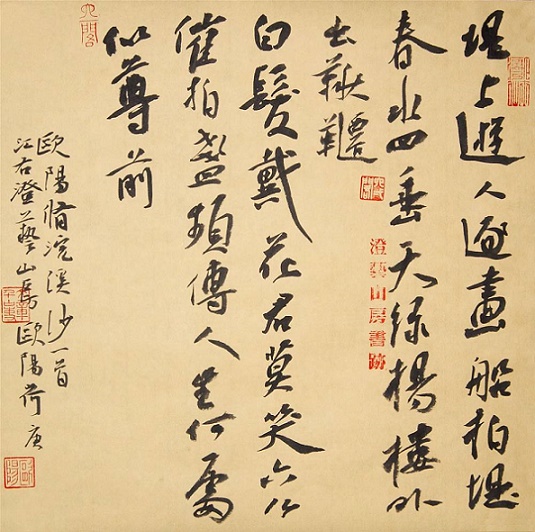 堤上遊人逐畫船拍堤
春水四垂天綠楊樓外
出鞦韆
白髮戴花君莫笑六么
催拍盞頻傳人生何處
似尊前
歐陽脩浣溪沙一首
江右澄藝山房歐陽荷庚
澄藝山房書跡